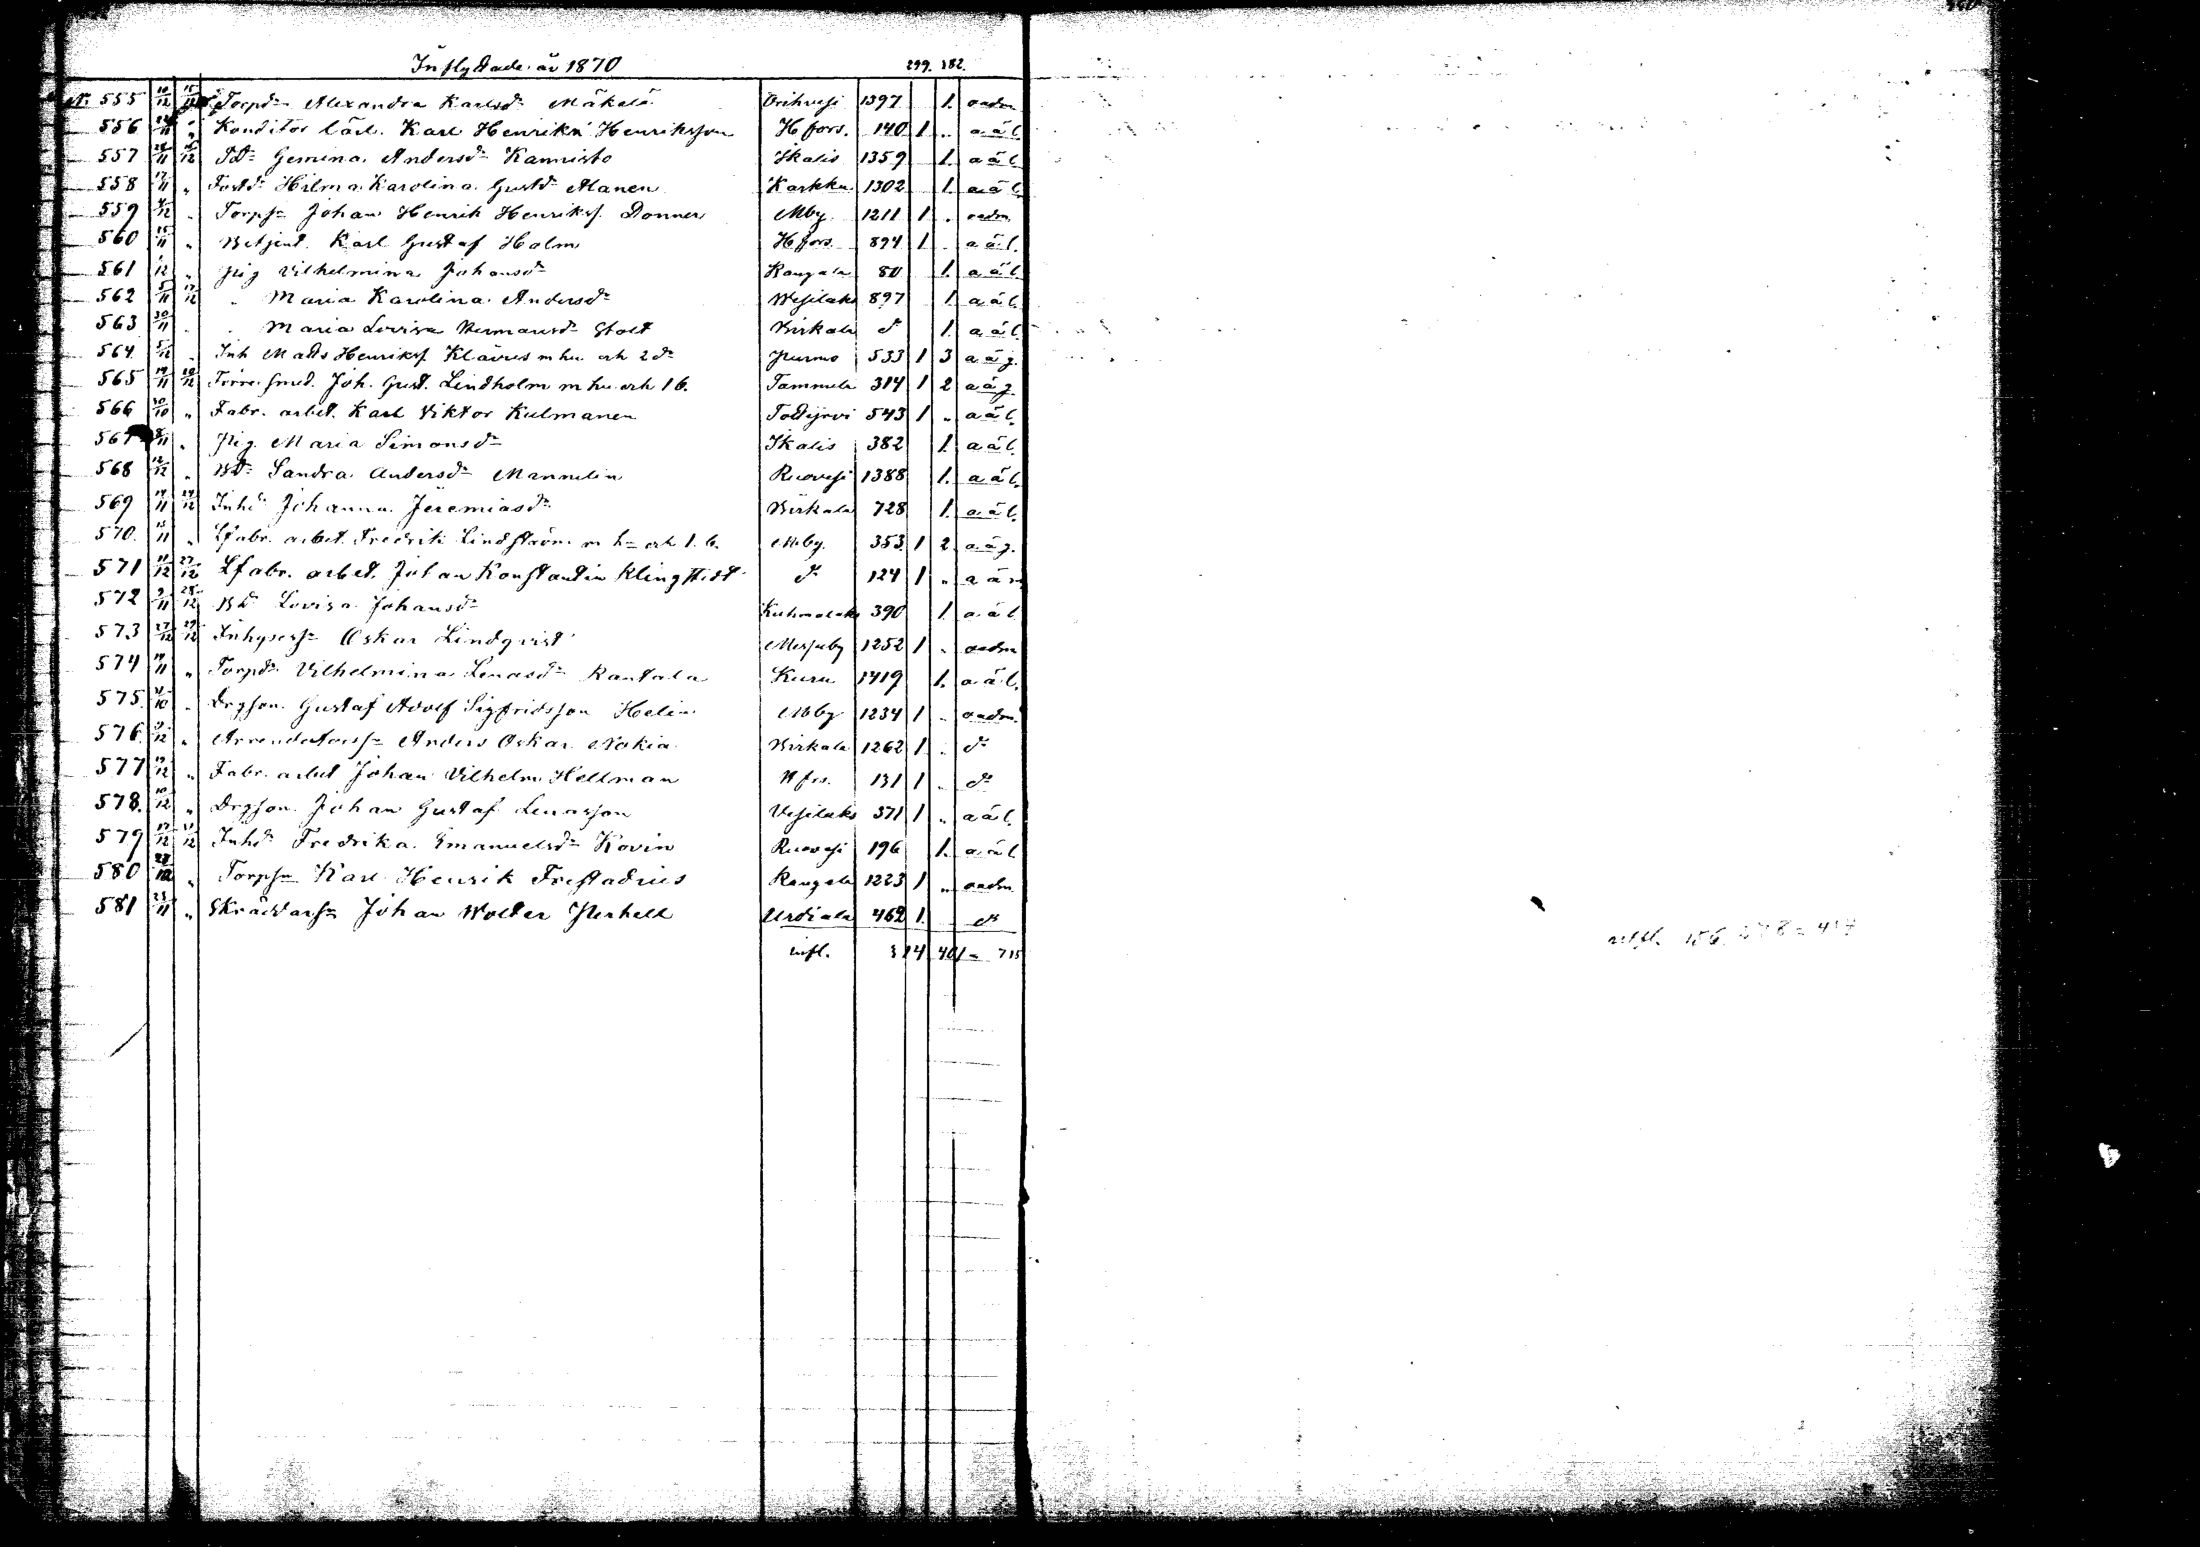 Inflyttade år 1870 299. 382.
N: 555 10/12 15/12 Torpd:r Alexandra Karlsd:r Mäkelä Orihvesi 1397 1. oadm
556 /11 " Konditor lärl. Karl Henrik Henriksson Hfors. 140 1 " a ä l.
557 28/11 16/12 Td:r Gemina Andersd:r Kannisto Ikalis 1359 1. a ä l
558 17/11 " Tostd:r Hilma Karolina Gustd:r Alanen Karkku 1302 1. a ä l
559 4/12 " Torps:n Johan Henrik Henriksf. Donner Mby. 1211 1 " oadm
560 15/11 " Betjent. Karl Gustaf Holm Hfors. 894 1 " a ä l.
561 1/12 " Pig Vilhelmina Johansd:r Kangala 80 1. a ä l.
562 5/11 17/12 " Maria Karolina Andersd:r Wesilaks 897 1. a ä l.
563 30/11 " " Maria Lovisa Hermansd:r Stolt Birkala d:o 1. a ä l.
564 5/12 " Inh Matts Henriksf. Klävus m hu och 2 d:r Purmo 533 1 3 a ä g.
565 19/11 19/12 Smed. Joh. Gust. Lindholm m hu och 1 b. Tammela 314 1 2 a ä g
566 30/10 " Fabr. arbet. Karl Viktor Kulmanen 543 1 " a ä l.
567 8/11 " Pig. Maria Simonsd:r Ikalis 382 1. a ä l.
568 12/12 " Bd:r Sandra Andersd:r Mannelin Ruovesi 1388 1. a ä l.
569 19/11 24/12 Inhd:r Johanna Jeremiasd:r Birkala 728 1. a ä l.
570. 15/11 " Lfabr. arbet. Fredrik Lindström m h:u och 1. b. Mby. 353 1 2 a ä g.
571 10/12 27/12 Lfabr. arbet. Johan Konstantin Klingstedt d:o 124 1 " a ä
572 9/11 28/12 Bd:r Lovisa Johansd:r Kuhmalaks 390 1. a ä l
573 27/12 29/12 Inhyses:n Oskar Lindqvist Messuby 1252 1 " oadm
574 19/11 " Torpd:r Vilhelmina Lenasd:r Rantala Kuru 1419 1. a ä l.
575. /10 " Drgson. Gustaf Adolf Sigfridsson Helin Mby 1234 1 " oadm.
576. 9/12 " Arrendators:n Anders Oskar Nokia Birkala 1262 1 " d:o
577 19/12 " Fabr. arbet Johan Vilhelm Hellman 131 1 " d:o
578. 10/12 " Drgson Johan Gustaf Lenasson Vesilaks 371 1 " a ä l.
579 17/12 31/12 Inhd:r Fredrika Emanuelsd:r Kovin Ruovesi 196 1. a ä l
580 28/12 " Torps:n Karl Henrik Frestadius Kangala 1223 1 " oadm
581 23/11 " Skräddars:n Johan Wolter Perhell Urdiala 462 1. d:o
infl. 314 401 = 715
utfl.